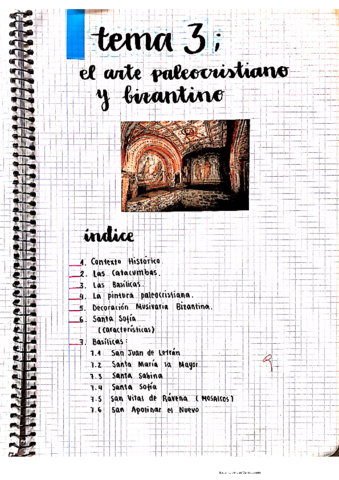 tema 3;
el arte paleocristiano
y bizantino
índice
1. Contexto Histórico.
2. Las Catacumbas.
3. Las Basílicas.
4. La pintura paleocristiana.
5. Decoración Musivaria Bizantina.
6. Santa Sofía
(características)
7. Basílicas:
7.1 San Juan de Letrán
7.2 Santa María la Mayor
7.3 Santa Sabina
7.4 Santa Sofía
7.5 San Vital de Rávena (MOSAICOS)
7.6 San Apolinar el Nuevo